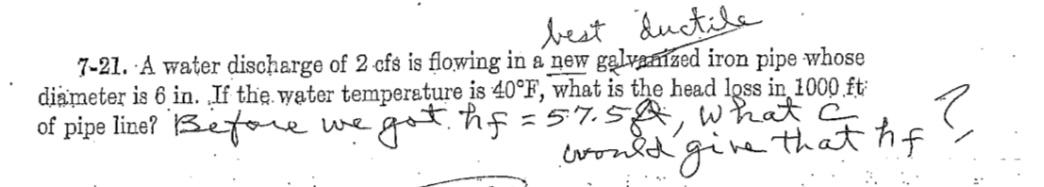 best ductile
7-21. A water discharge of 2 cfs is flowing in a new galvanized iron pipe whose
diameter is 6 in. If the water temperature is 40°F, what is the head loss in 1000 ft
of pipe line? Before we got hf = 57.5 ft, what C
would give that hf ?